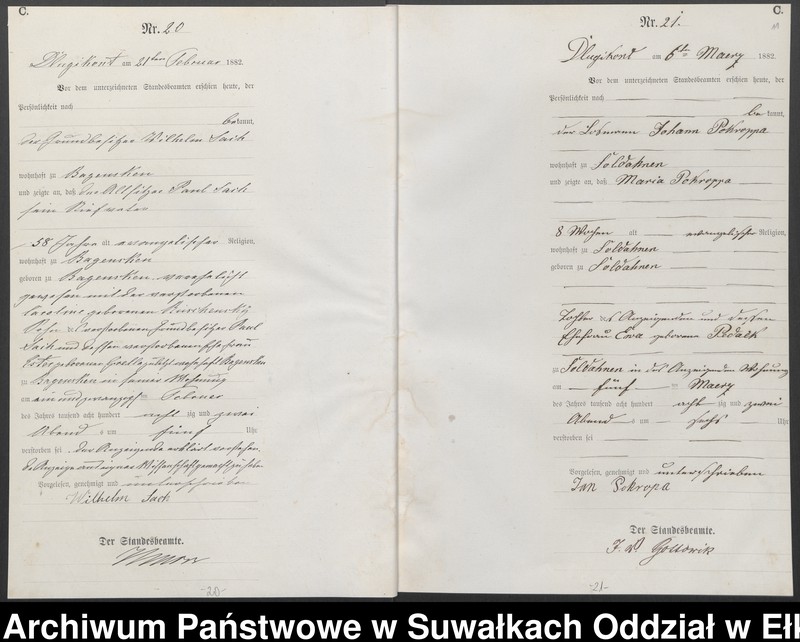 C.
Nr. 20
Dlugikont am 21ten Februar 1882.
Vor dem unterzeichneten Standesbeamten erschien heute, der
Persönlichkeit nach
bekannt,
der Grundbesitzer Wilhelm Sack
wohnhaft zu Bagensken
und zeigte an, daß der Altsitzer Paul Sack
sein Stiefvater
58 Jahre alt evangelischer Religion,
wohnhaft zu Bagensken
geboren zu Bagensken verehelicht
gewesen mit der verstorbenen
Caroline geborenen
Sohn des verstorbenen Grundbesitzer Paul
Sack und dessen verstorbenen Ehefrau
Ester geborenen zuletzt wohnhaft Bagensken
zu Bagensken in seiner Wohnung
am ein und zwanzigsten Februar
des Jahres tausend acht hundert acht zig und zwei
Abend s um fünf Uhr
verstorben sei. Der Anzeigende erklärt
die Anzeige aus eigener Wissenschaft gemacht zu haben
Vorgelesen, genehmigt und unterschrieben
Wilhelm Sack
Der Standesbeamte.
-20-
C.
Nr. 21.
Dlugikont am 6ten Maerz 1882
Vor dem unterzeichneten Standesbeamten erschien heute, der
Persönlichkeit nach
bekannt,
der Losmann Johann Pokroppa
wohnhaft zu Soldahnen
und zeigte an, daß Maria Pokroppa
8 Wochen alt evangelischer Religion,
wohnhaft zu Soldahnen
geboren zu Soldahnen
Tochter des Anzeigenden und dessen
Ehefrau Ewa geborene Podalk
zu Soldahnen in des Anzeigenden Wohnung
am fünf ten Maerz
des Jahres tausend acht hundert acht zig und zwei
Abend s um sechs Uhr
verstorben sei
Vorgelesen, genehmigt und unterschrieben
Jan Pokropa
Der Standesbeamte.
J. V. Gollowik
-21-
Archiwum Państwowe w Suwałkach Oddział w Eł